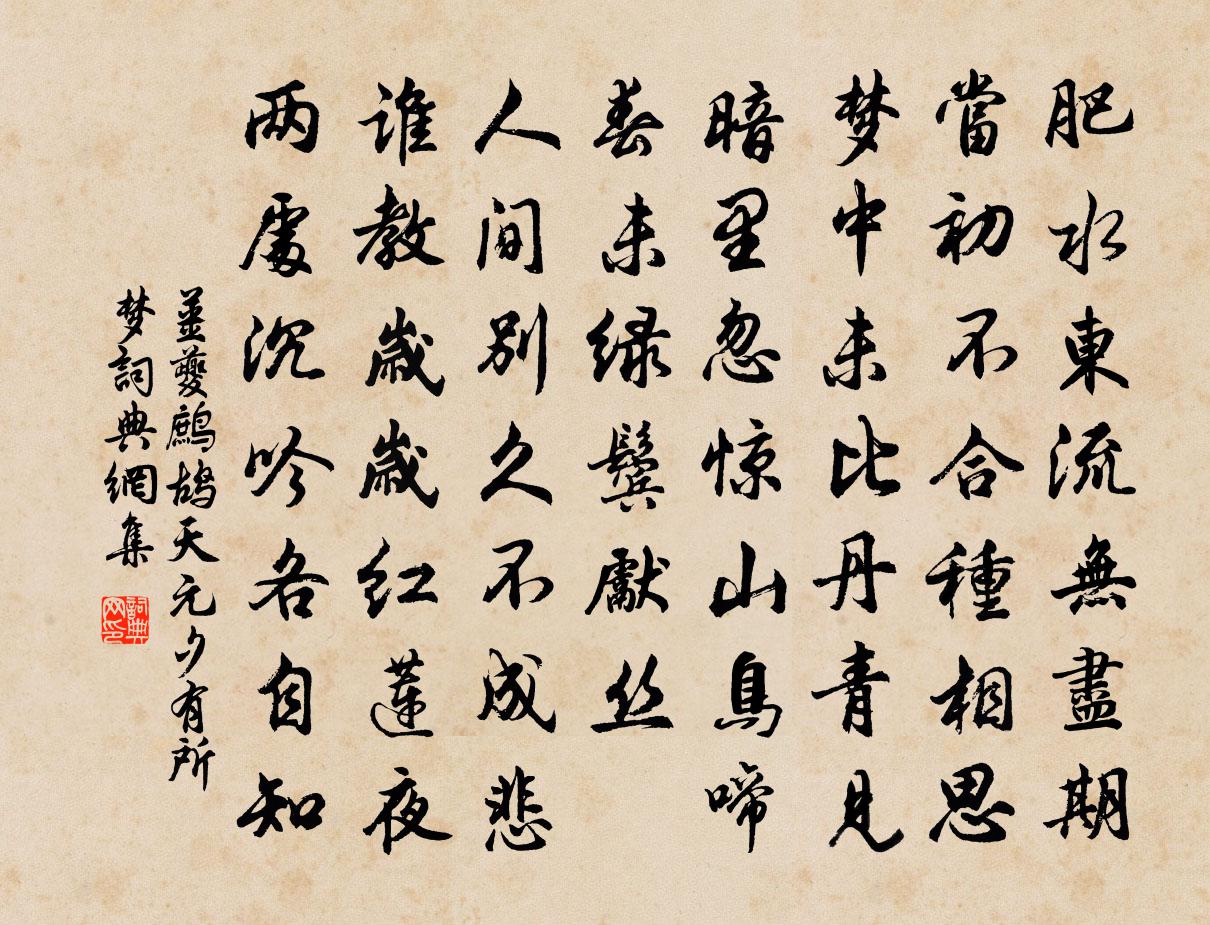 肥水東流無盡期
當初不合種相思
梦中未比丹青見
暗里忽惊山鳥啼
春未绿鬓獻丝
人间别久不成悲
谁教歲歲红蓮夜
两處沉吟各自知
薑夔鷓鴣天元夕有所
梦詞典網集
詞典
网印